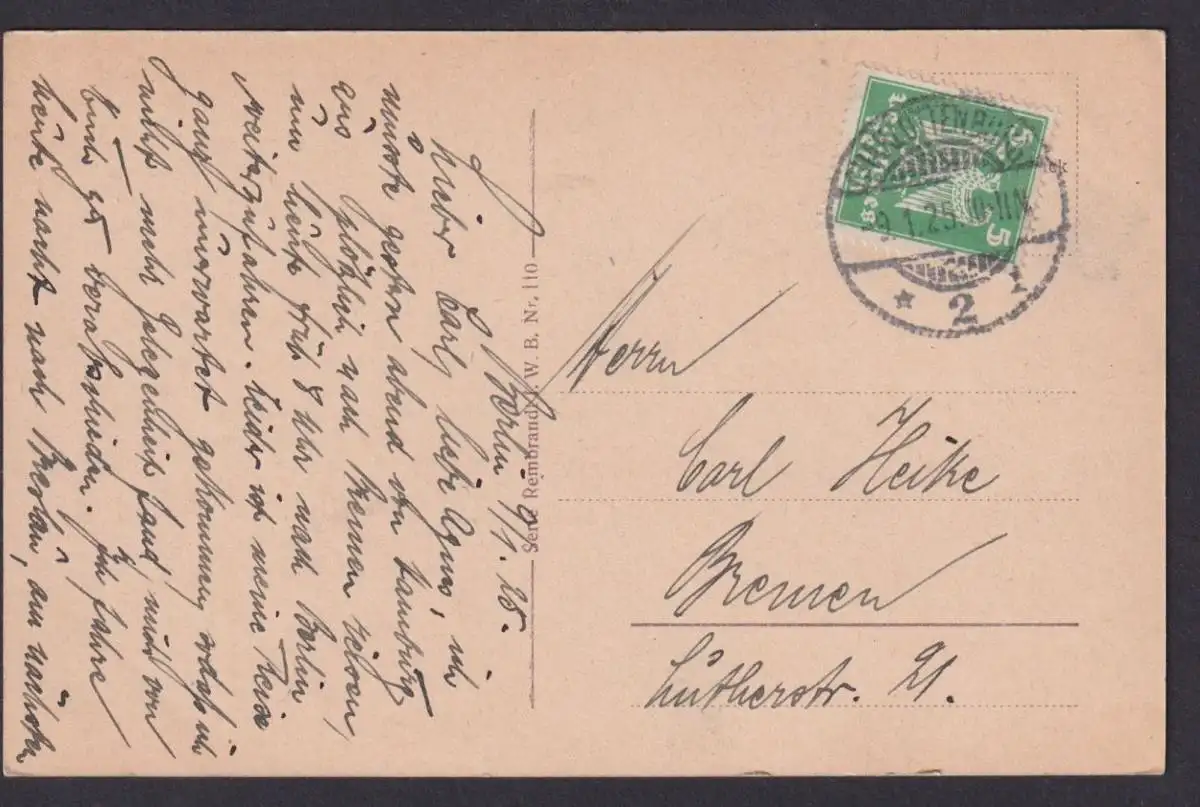 Berlin 9/1. 25.
Lieber Carl, liebe Agnes, ich
mußte gestern abend von Hamburg
aus plötzlich nach Bremen reisen,
um heute früh 8 Uhr nach Berlin
weiterzufahren. Leider ist meine Reise
ganz unerwartet gekommen, so daß ich
nicht mehr Gelegenheit fand, mich von
Euch zu verabschieden. Ich fahre
heute nacht nach Breslau, am nächsten
Serie Rembrandt. W. B. Nr. 110
CHARLOTTENBURG
9.1.25. 10-11 N
* 2
5
5
Herrn
Carl Heike
Bremen
Lutherstr. 21.